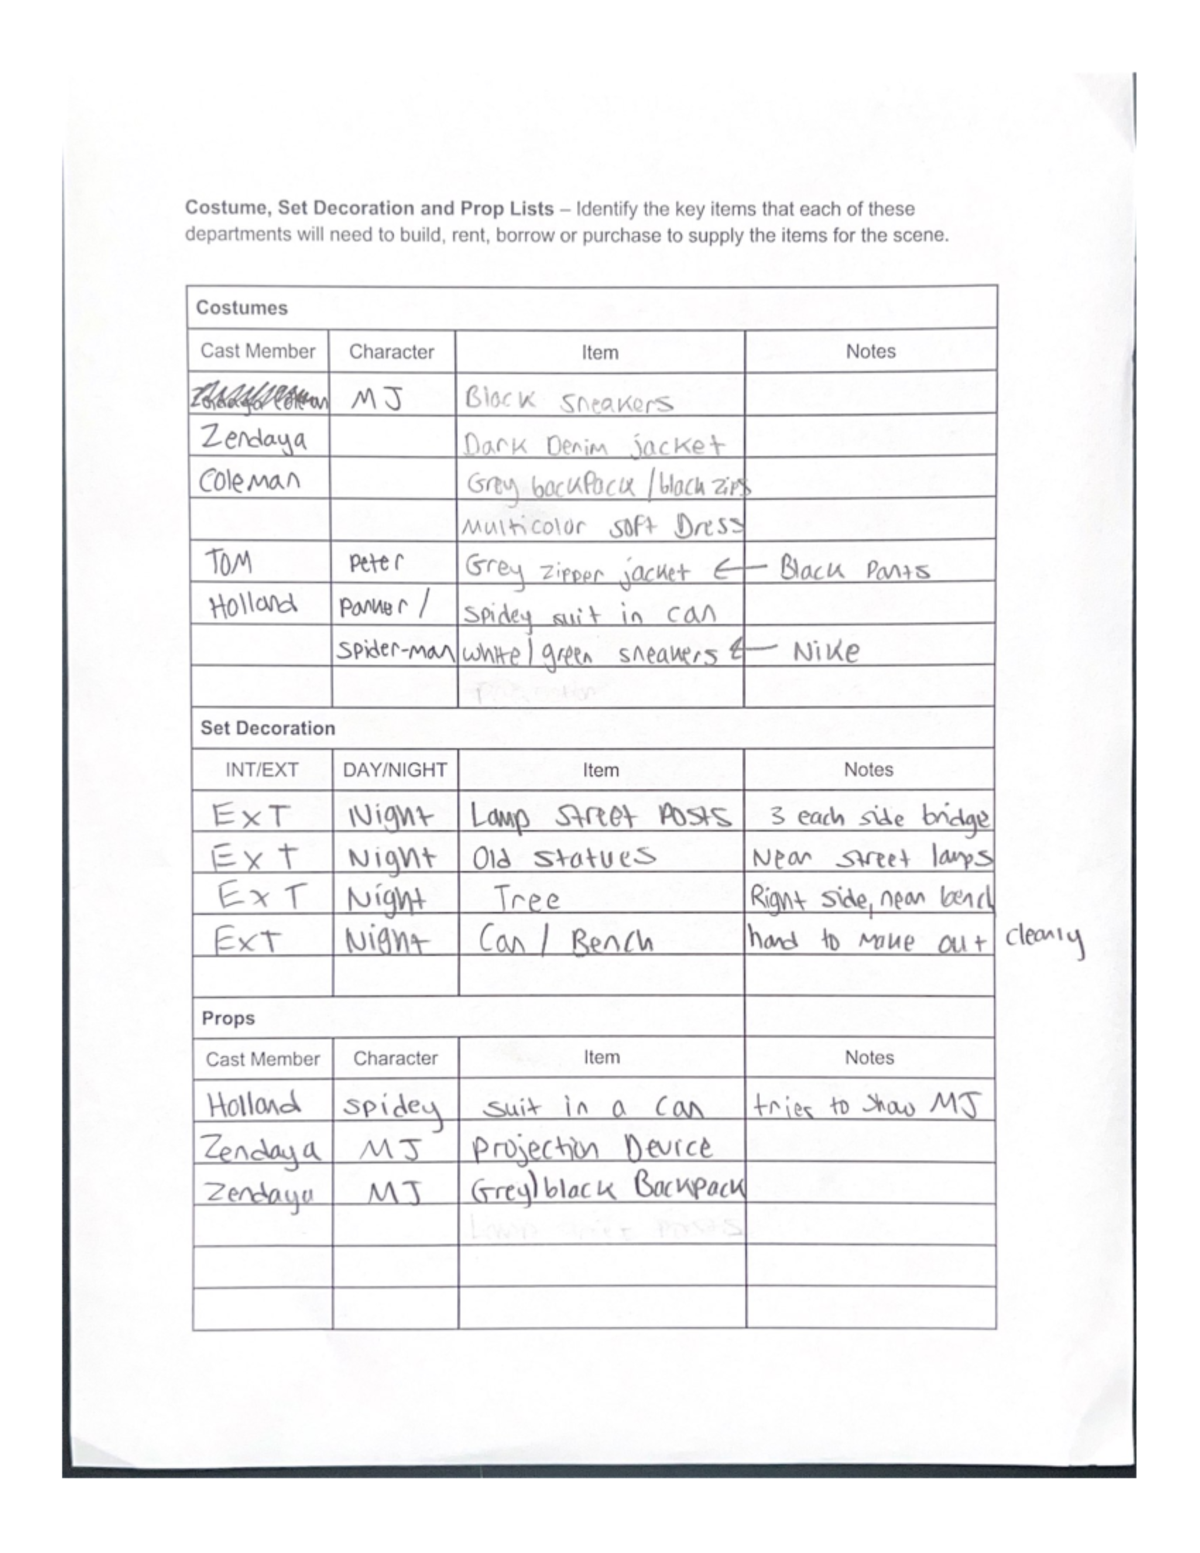 Costume, Set Decoration and Prop Lists – Identify the key items that each of these
departments will need to build, rent, borrow or purchase to supply the items for the scene.
Costumes
Cast Member Character Item Notes
MJ Black sneakers
Zendaya Dark Denim jacket
Coleman Grey backpack / black zips
Multicolor soft Dress
Tom Peter Grey zipper jacket ← Black Pants
Holland Parker / spidey suit in can
spider-man white / green sneakers ← Nike
Set Decoration
INT/EXT DAY/NIGHT Item Notes
ExT Night Lamp Street Posts 3 each side bridge
ExT Night Old statues Near street lamps
ExT Night Tree Right side, near bench
ExT Night Can / Bench hard to move out cleanly
Props
Cast Member Character Item Notes
Holland spidey suit in a can tries to show MJ
Zendaya MJ Projection Device
Zendaya MJ Grey/black Backpack
Lamp Posts